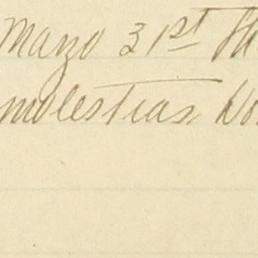 Mayo 31st
molestias